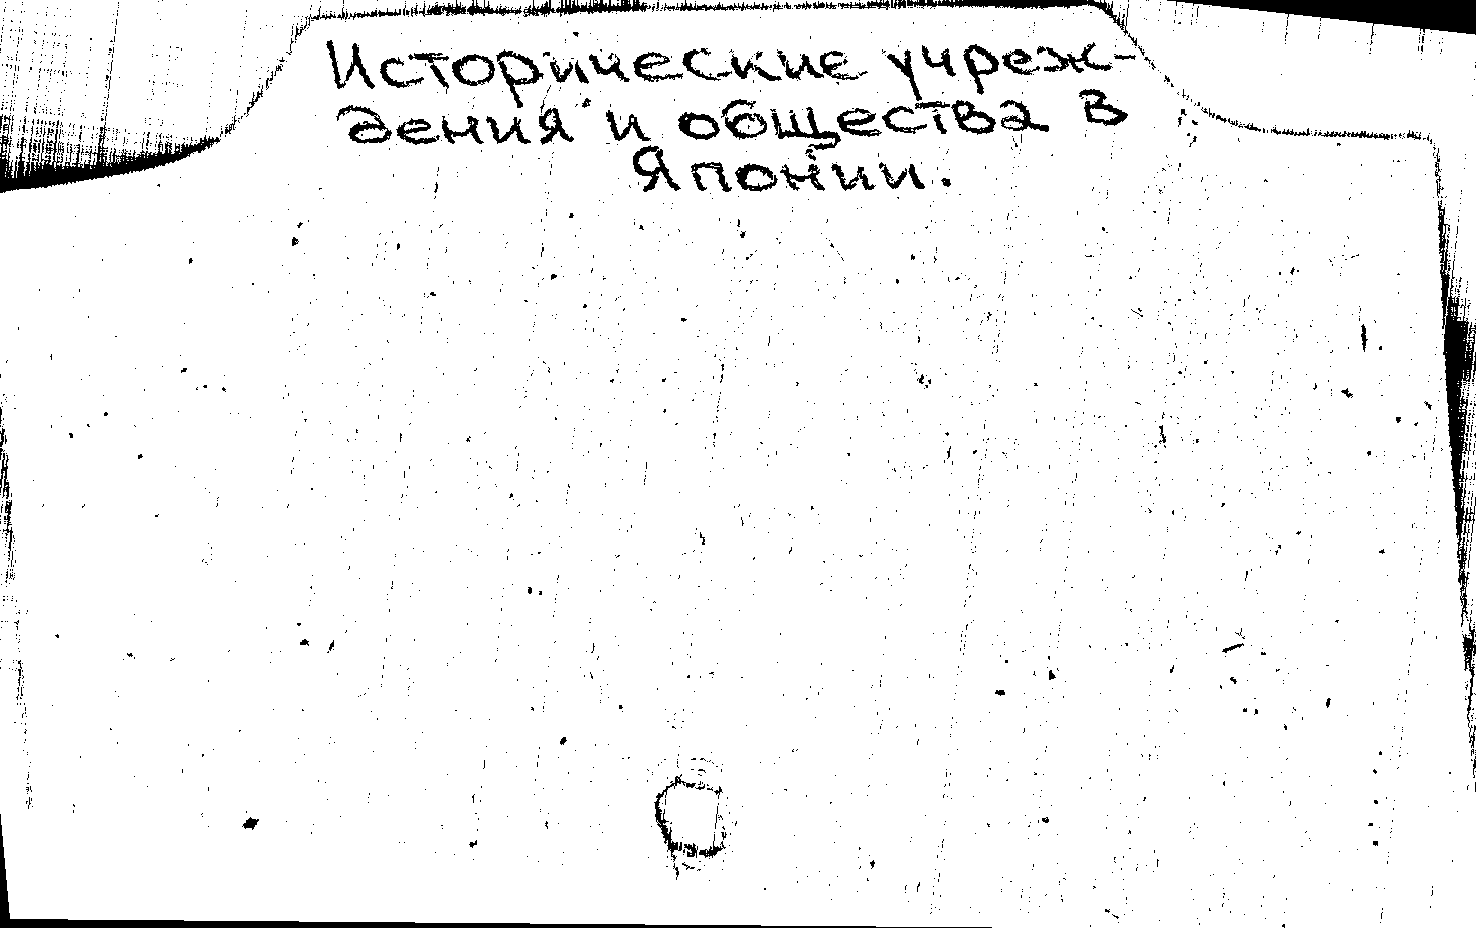 Исторические учреж-
дения и общества в
Японии.